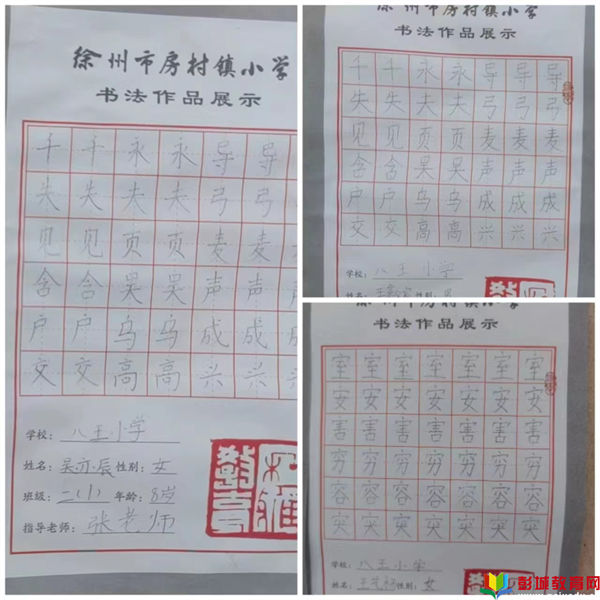 徐州市房村镇小学
书法作品展示
千千永永导导
失失夫夫弓弓
见见页页麦麦
含含吴吴声声
户户乌乌成成
交交高高兴兴
学校：八王小学
姓名：吴亦辰 性别：女
班级：二（1） 年龄：8岁
指导老师：张老师
徐州市房村镇小学
书法作品展示
千千永永导导导
失失夫夫弓弓弓
见见页页麦麦麦
含含吴吴声声声
户户乌乌成成成
交交高高兴兴兴
学校：八王小学
姓名： 性别：男
徐州市房村镇小学
书法作品展示
室室室室室室室
安安安安安安安
害害害害害害害
穷穷穷穷穷穷穷
容容容容容容容
突突突突突突突
学校：八王小学
姓名： 性别：女
彭城教育网